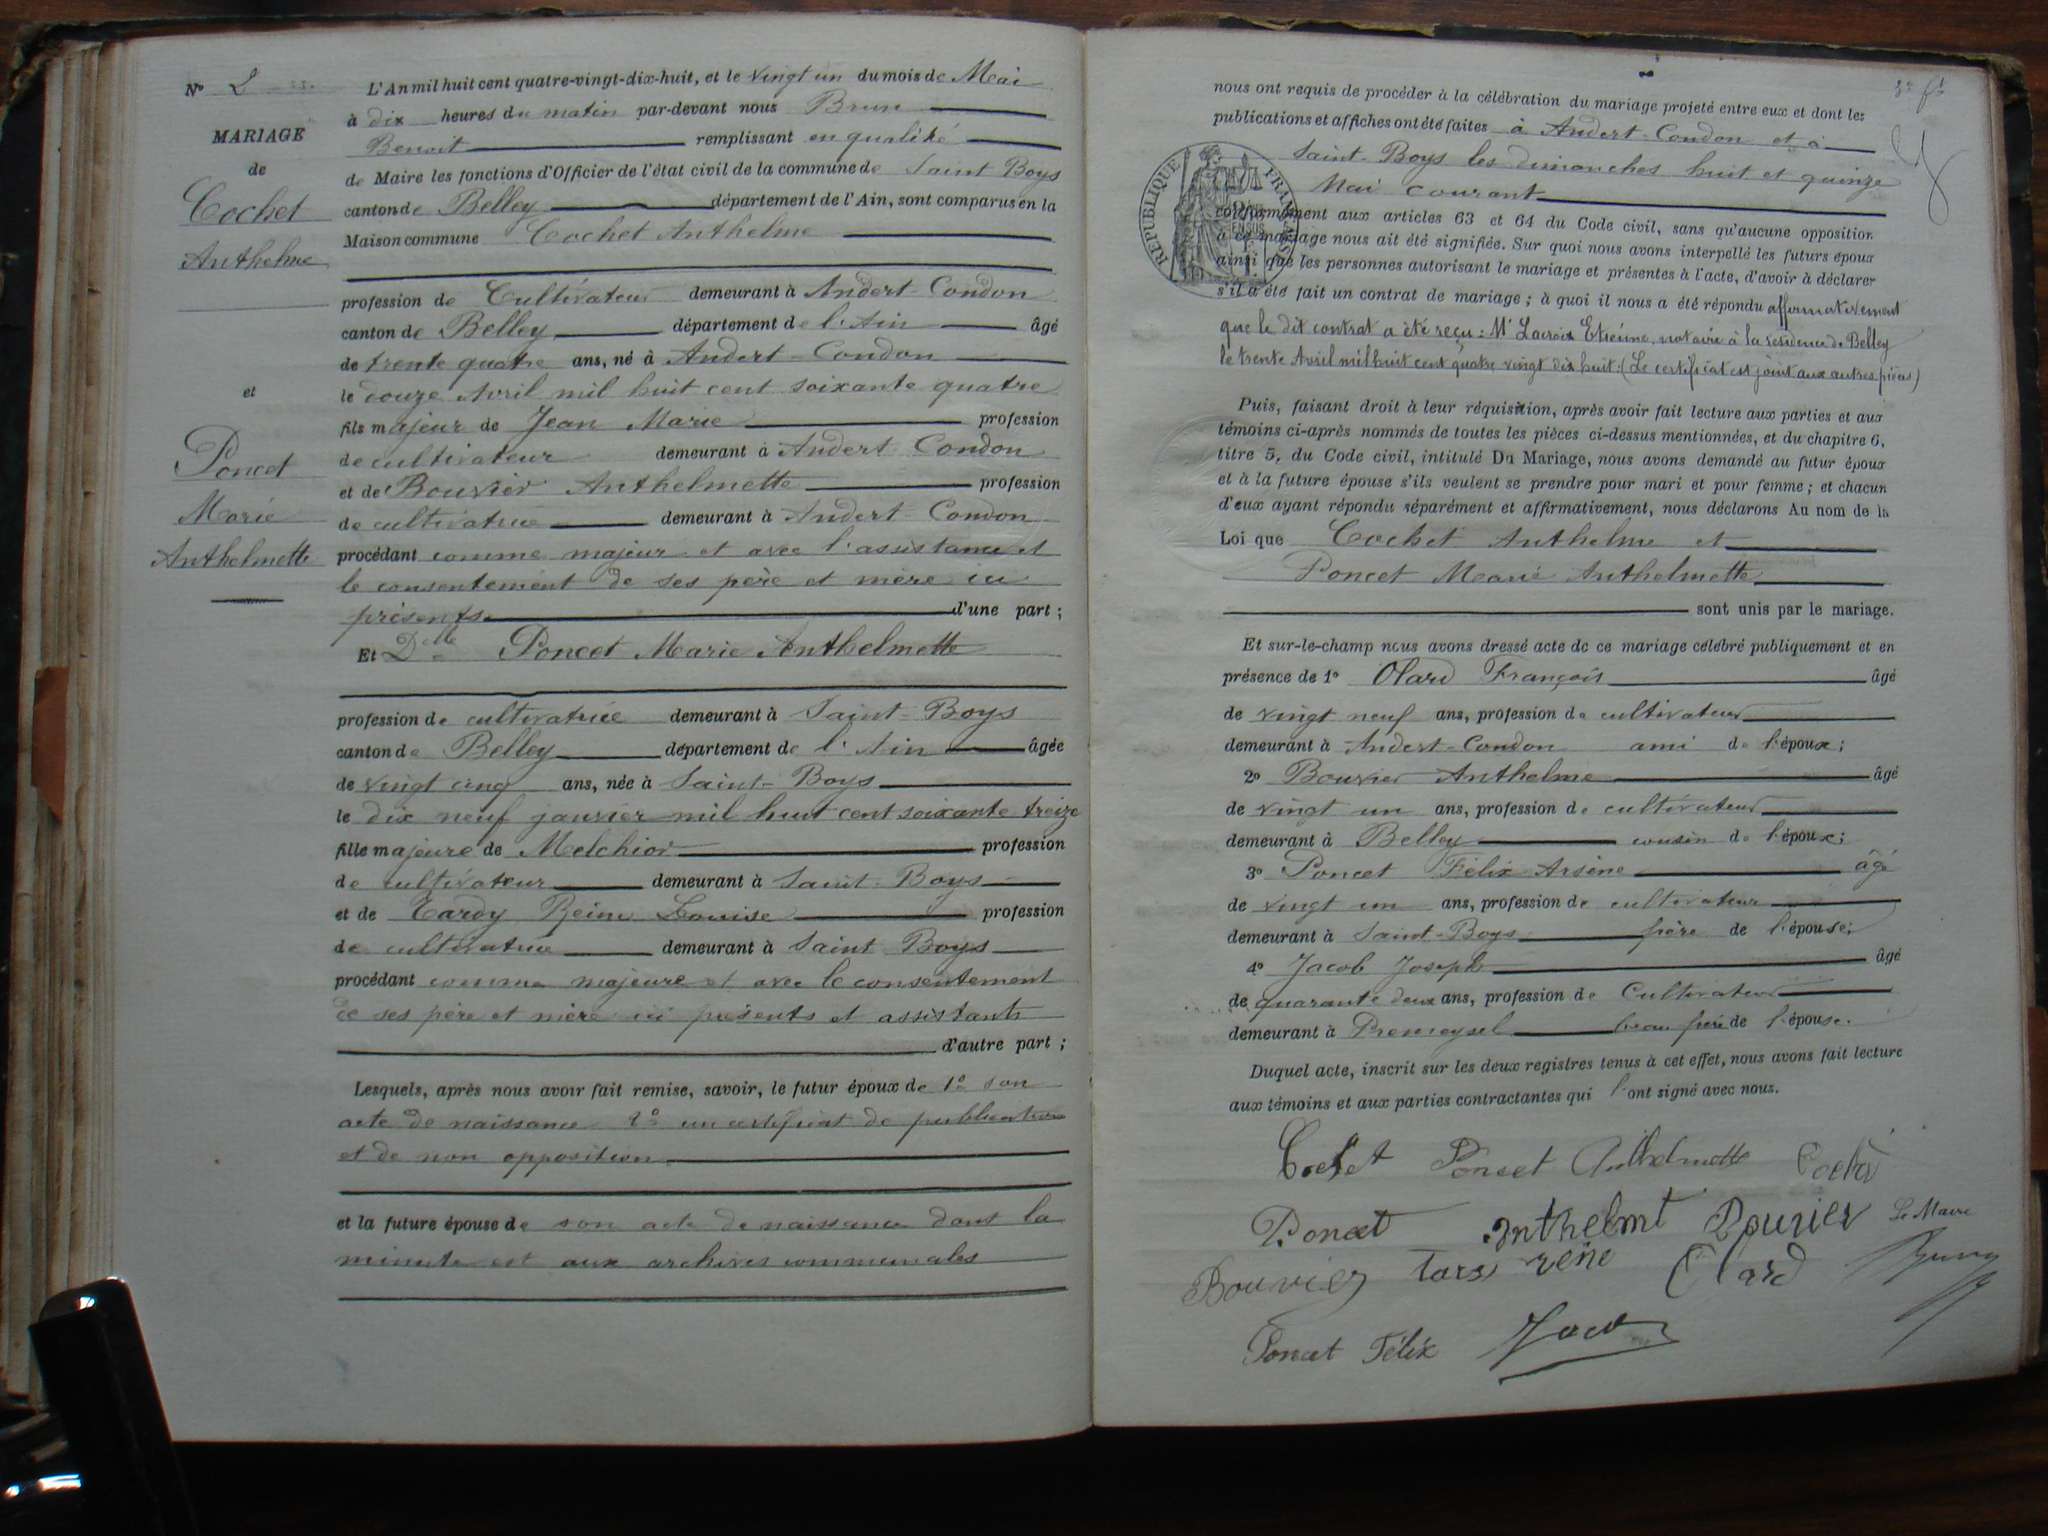 Nº 2
MARIAGE
de
Cochet
Anthelme
et
Poncet
Marie
Anthelmette
L'An mil huit cent quatre-vingt-dix-huit, et le vingt un du mois de Mai
à dix heures du matin par-devant nous Brun
Benoit remplissant en qualité
de Maire les fonctions d'Officier de l'état civil de la commune de Saint Boys
canton de Belley département de l'Ain, sont comparus en la
Maison commune Cochet Anthelme
profession de Cultivateur demeurant à Andert-Condon
canton de Belley département de l'Ain âgé
de trente quatre ans, né à Andert-Condon
le douze Avril mil huit cent soixante quatre
fils majeur de Jean Marie profession
de cultivateur demeurant à Andert Condon
et de Bouvier Anthelmette profession
de cultivatrice demeurant à Andert Condon
procédant comme majeur et avec l'assistance et
le consentement de ses père et mère ici
présents d'une part ;
Et Delle Poncet Marie Anthelmette
profession de cultivatrice demeurant à Saint-Boys
canton de Belley département de l'Ain âgée
de vingt cinq ans, née à Saint-Boys
le dix neuf janvier mil huit cent soixante treize
fille majeure de Melchior profession
de cultivateur demeurant à Saint-Boys
et de Tardy Reine Louise profession
de cultivatrice demeurant à Saint Boys
procédant comme majeure et avec le consentement
de ses père et mère ici présents et assistants
d'autre part ;
Lesquels, après nous avoir fait remise, savoir, le futur époux de 1º son
acte de naissance 2º un certificat de publication
et de non opposition
et la future épouse de son acte de naissance dont la
minute est aux archives communales
nous ont requis de procéder à la célébration du mariage projeté entre eux et dont les
publications et affiches ont été faites à Andert-Condon et à
Saint-Boys les dimanches huit et quinze
Mai courant
RÉPUBLIQUE FRANÇAISE
conformément aux articles 63 et 64 du Code civil, sans qu'aucune opposition
à ce mariage nous ait été signifiée. Sur quoi nous avons interpellé les futurs époux
ainsi que les personnes autorisant le mariage et présentes à l'acte, d'avoir à déclarer
s'il a été fait un contrat de mariage ; à quoi il nous a été répondu affirmativement
que le dit contrat a été reçu : Me Lacroix Etienne, notaire à la résidence de Belley
le trente Avril mil huit cent quatre vingt dix huit : (Le certificat est joint aux autres pièces)
Puis, faisant droit à leur réquisition, après avoir fait lecture aux parties et aux
témoins ci-après nommés de toutes les pièces ci-dessus mentionnées, et du chapitre 6,
titre 5, du Code civil, intitulé Du Mariage, nous avons demandé au futur époux
et à la future épouse s'ils veulent se prendre pour mari et pour femme ; et chacun
d'eux ayant répondu séparément et affirmativement, nous déclarons Au nom de la
Loi que Cochet Anthelme et
Poncet Marie Anthelmette
sont unis par le mariage.
Et sur-le-champ nous avons dressé acte de ce mariage célébré publiquement et en
présence de 1º Olard François âgé
de vingt neuf ans, profession de cultivateur
demeurant à Andert-Condon ami de l'époux ;
2º Bouvier Anthelme âgé
de vingt un ans, profession de cultivateur
demeurant à Belley cousin de l'époux ;
3º Poncet Félix Arsène âgé
de vingt un ans, profession de cultivateur
demeurant à Saint-Boys frère de l'épouse ;
4º Jacob Joseph âgé
de quarante deux ans, profession de Cultivateur
demeurant à Premeyzel beau frère de l'épouse.
Duquel acte, inscrit sur les deux registres tenus à cet effet, nous avons fait lecture
aux témoins et aux parties contractantes qui l'ont signé avec nous.
Cochet Poncet Anthelmette
Poncet Anthelmt Bouvier Le Maire
Bouvier Olard Brun
Poncet Félix Jacob